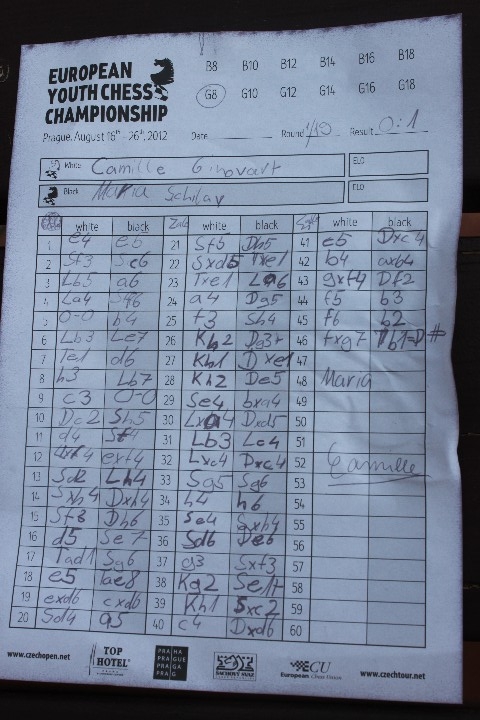 EUROPEAN
YOUTH CHESS
CHAMPIONSHIP
Prague, August 16th - 26th, 2012
B8 B10 B12 B14 B16 B18
G8 G10 G12 G14 G16 G18
Date Round 1/19 Result 0:1
White Camille ELO
Black Maria ELO
white black white black white black
1 e4 e5 21 Sf5 Dh5 41 e5 Dxc4
2 Sf3 Sc6 22 Sxd5 Txe1 42 b4 axb4
3 Lb5 a6 23 Txe1 La6 43 gxf4 Df2
4 La4 Sf6 24 a4 Dg5 44 f5 b3
5 0-0 b4 25 f3 Sh4 45 f6 b2
6 Lb3 Le7 26 Kh2 Dg3+ 46 fxg7 Tb1=D#
7 Te1 d6 27 Kh1 Dxe1 47
8 h3 Lb7 28 Kh2 De5 48 Maria
9 c3 0-0 29 Se4 bxa4 49
10 Dc2 Sh5 30 Lxa4 Dxd5 50
11 d4 Sf4 31 Lb3 Lc4 51
12 exf4 32 Lxc4 Dxc4 52 Camille
13 Lh4 33 Sg5 Sg6 53
14 Sxh4 Dxh4 34 h4 h6 54
15 Sf3 Dh6 35 Se4 Sxh4 55
16 d5 Se7 36 Sd6 De6 56
17 Tad1 Sg6 37 g3 Sxf3 57
18 e5 Tae8 38 Kg2 Se1+ 58
19 exd6 cxd6 39 Kh1 Sxc2 59
20 Sd4 a5 40 c4 Dxd6 60
www.czechopen.net TOP HOTEL PRAHA PRAGUE PRAGA PRAG ECU European Chess Union www.czechtour.net